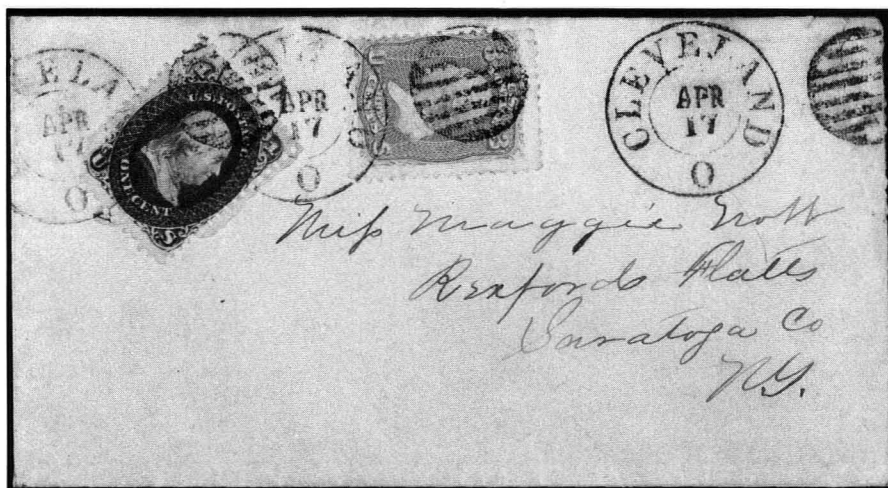 ELA
APR
17
O
U.S. POSTAGE
ONE CENT
APR
17
O
CLEVELAND
APR
17
O
Miss Maggie Nott
Rexfords Flatts
Saratoga Co
N.Y.